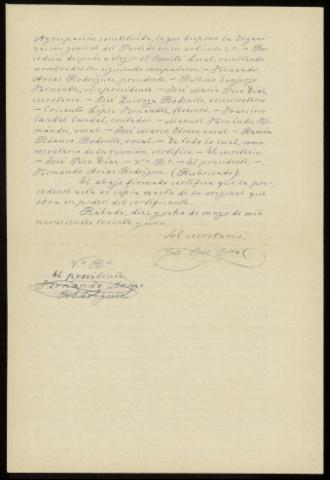 Agrupación constituida, lo que dispone la Organi-
zación general del Partido en su artículo 2º. — Pro-
cedióse después a elegir el Comité Local, resultando
nombrados los siguientes compañeros: — Fernando
Arias Rodríguez, presidente. — Balbino
Fernández, vicepresidente. — José María Pico Díaz,
secretario. — José Quiroga Bodealle, vicesecretario
— Corsanto López Fernández, tesorero. — Francisco
Candal Candal, contador. — Manuel Fernández Fer-
nández, vocal. — José Marco Olmos, vocal. — Ramón
Polanco Bodealle, vocal. — De todo lo cual, como
secretario de la reunión, certifico. — El secretario.
— José Pico Díaz. — Vº Bº. — El presidente. —
Fernando Arias Rodríguez. (Rubricado).
El abajo firmado certifica que la pre-
cedente acta es copia exacta de la original que
obra en poder del certificante.
Rábade, diez y ocho de mayo de mil
novecientos treinta y uno.
El secretario,
José Pico Díaz
Vº Bº
El presidente
Fernando Arias
Rodríguez